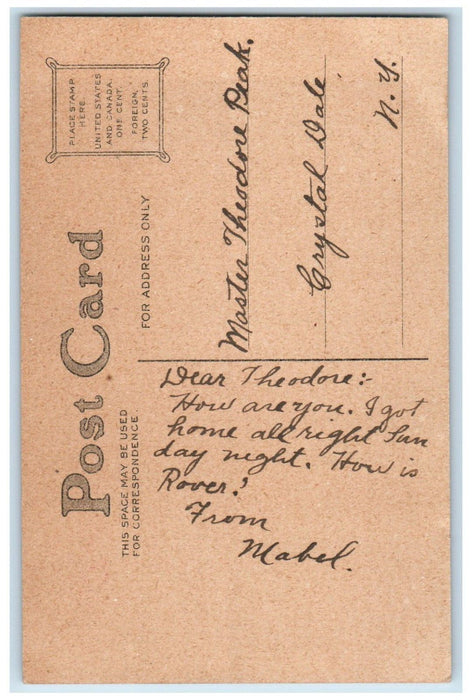 Post Card
THIS SPACE MAY BE USED
FOR CORRESPONDENCE
FOR ADDRESS ONLY
PLACE STAMP
HERE.
UNITED STATES
AND CANADA,
ONE CENT.
FOREIGN,
TWO CENTS.
Dear Theodore:-
How are you. I got
home all right Sun
day night. How is
Rover?
From
Mabel.
Master Theodore Peak.
Crystal Dale
N. Y.